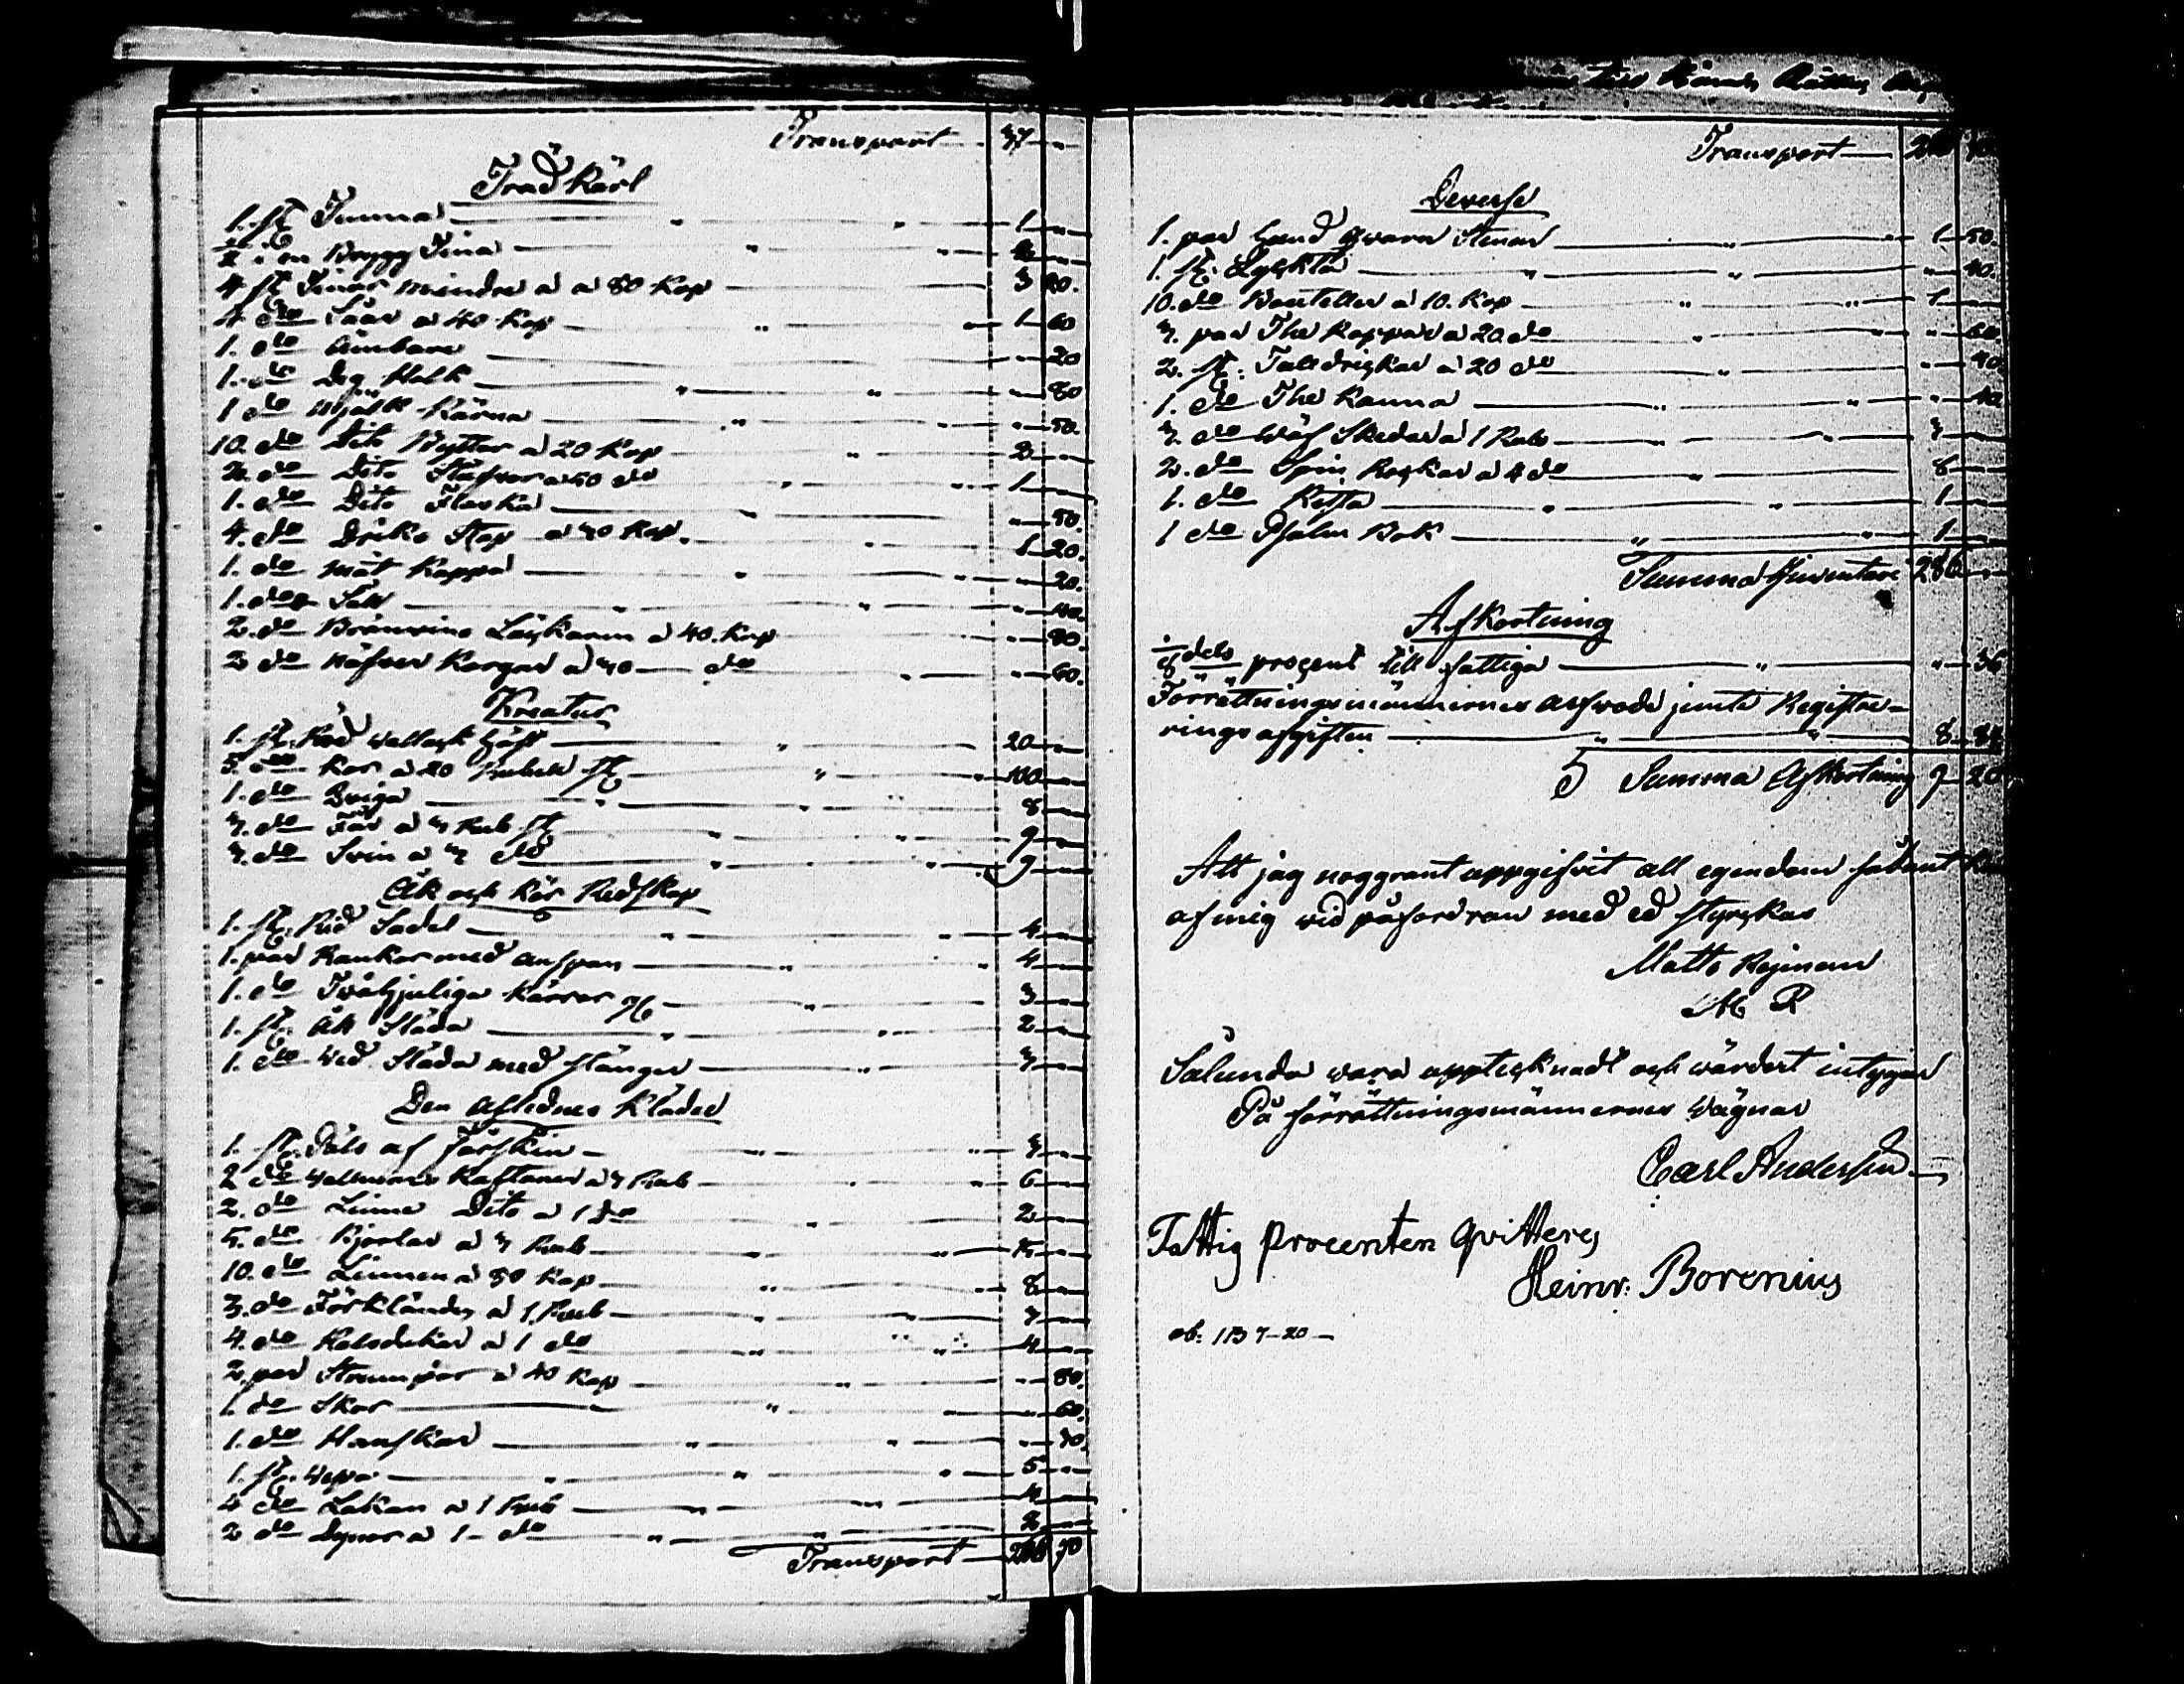 Transport 37 "
Träd Kärl
1. st. Tunna " " 1 "
2 Brygg Tina " "
4 st Tinor mindre à 80 Kop 3 20.
4 do Såar a 40 Kop " " 1 60
1. do Ämbare " 20
1. do Deg " " " 80
1 do Mjölk Kärna " " 50.
10. do Dito Byttor a 20 Kop " 2
2. do Dito Stäfvor a 50 do " " 1
1. do Dito Flaska " " 50.
4. do Dricks Stop a 30 Kop. " 1 20.
1. do mått Kappa " " " 20.
1. do Såll " " " 40.
2. do Bränvins Läskarn a 40. Kop " 80.
2 do näfver Korgar a 30 do " " 60.
Kreatur
1. st. Röd Wallack Häst " 20
5. do Kor a 20 Rubel st " " 100
1. do Qviga " " " 8
3. do Får a 3 Rub st " " 9
3. do Svin a 3 do " " 9
Åk och Kör Redskap
1. st. Rid Sadel " " 4
1. par Kankor med anspan " " 4
1. do Tvåhjuliga Kärror " 3
1. st. Åk Släda " " 2
1. do Wed Släda med stänger " 3
Den aflednes Kläder
1. st. Päls af Fårskin " " 3
2 do Wallmans Kaftaner a 3 Rub " " 6
2. do Linne Dito a 1 do " 2
5. do Kjorlar a 3 Rub " " 15
10. do Linnen a 80 Kop " " 8
3. do Förkländer a 1 Rub " " 3
4. do Halsdukar a 1 do " " 4
2 par Strumpor a 40 Kop " " 80.
1. do Skor " " 60.
1. do Handskar " " " 30.
1. st. Wepa " " " 5 "
4 do Lakan a 1 Rub " " 4
2 do Dynor a 1 do " " 2
Transport 266 70
Transport
Diverse
1. par Hand qvarn Stenar " " 1 50.
1. st. Lyckta " " " 40.
10. do Bouteller a 10. Kop " " 1
3. par The Koppar a 20 do " " " 60.
2. st. Talldrickar a 20 do " " 40.
1. do The Kanna " " " 40
3. do Wäf Skedar a 1 Rub " " 3
2. do Spin Rockar a 4 do " 8
1. do Kista " " 1
1 do Psalm Bok " " 1
Summa Inventarie 286 "
Afkortning
1/8 dels procent till fattiga " " 36
Förrättningsmännernes arfvode jemte Registre-
rings afgiften " " 8 84
S Summa Afkortning 9 20
Att jag noggrant uppgifvit all egendom sådant
af mig vid påfordran med ed styrckas
Matts Reginen
M R
Sålunda vara upptecknadt och värdert intygar
På förrättningsmännernes Wägnar
Carl Andersén
Fattig procenten qvitteres
Heinr: Borenius